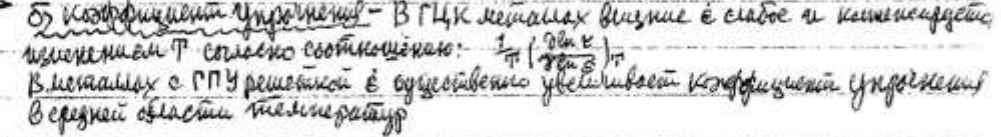 б) Коэффициент Упрочнения - В ГЦК металлах влияние ε̇ слабое и компенсируется
изменением T согласно соотношению: 1/T (∂ln τ/∂ln ε̇)T
В металлах с ГПУ решеткой ε̇ существенно увеличивает коэффициент упрочнения
в средней области температур